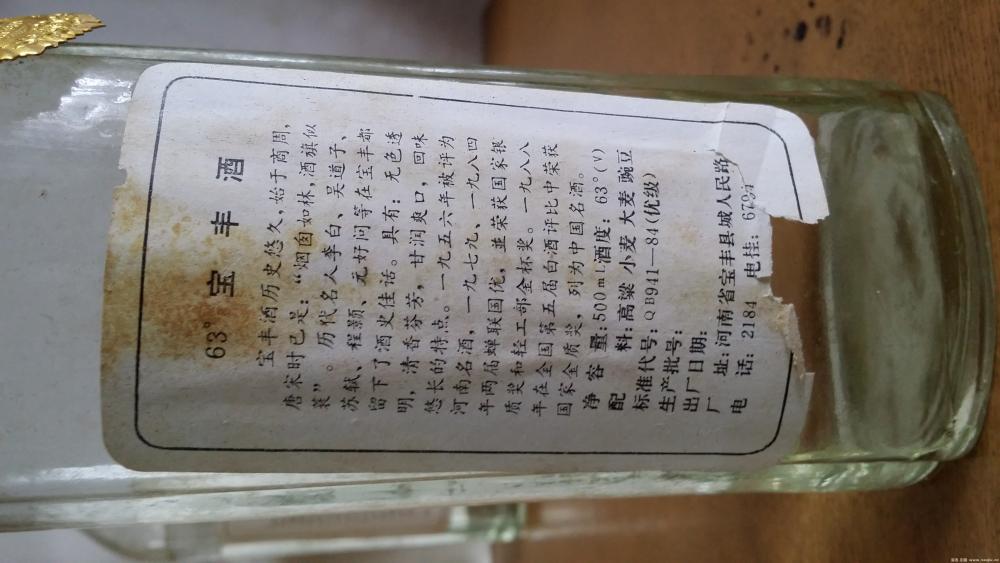 63° 宝丰酒
宝丰酒历史悠久,始于商周,
唐宋时已是:“烟囱如林,酒旗似
蓑”。历代名人李白、吴道子、
苏轼、程颢、元好问等在宝丰都
留下了酒史佳话。具有:无色透
明,清香芬芳,甘润爽口,回味
悠长的特点。一九五六年被评为
河南名酒,一九七九、一九八四
年两届蝉联国优,並荣获国家银
质奖和轻工部金杯奖。一九八八
年在全国第五届白酒评比中荣获
国家金质奖,列为中国名酒。
净 容 量:500mL酒度:63°(V)
配 料:高粱 小麦 大麦 豌豆
标准代号:QB941—84(优级)
生产批号:
出厂日期:
厂 址:河南省宝丰县城人民路
电 话:2184 电挂:679